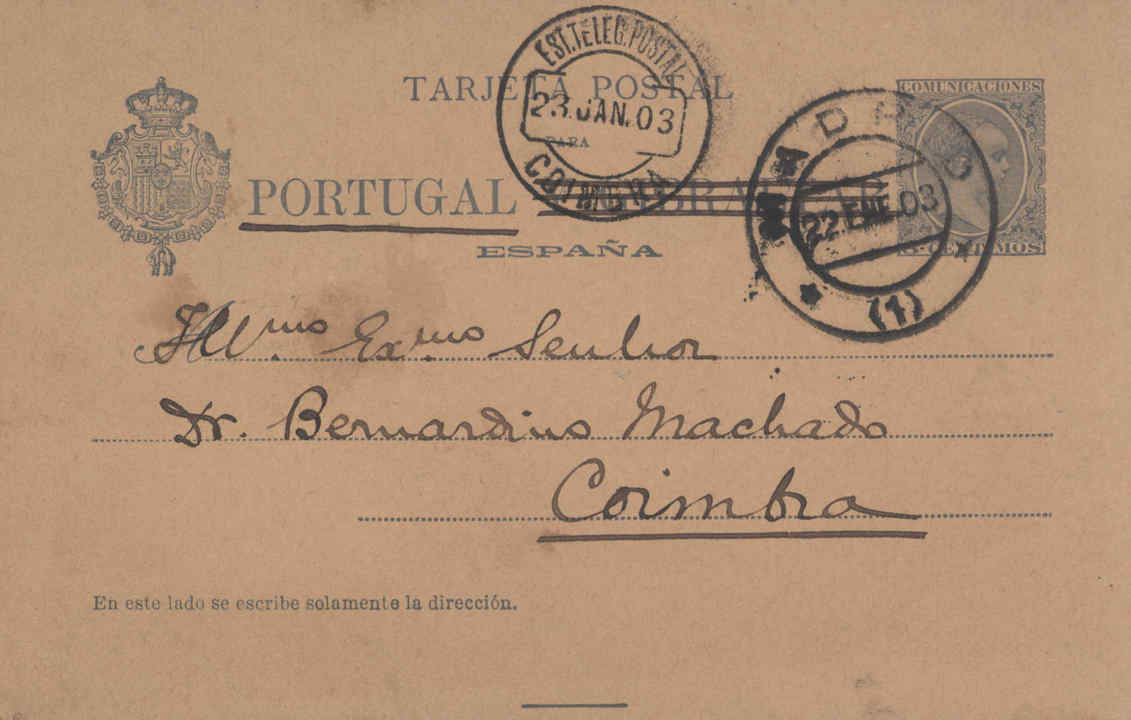 EST. TELEG. POSTAL
TARJETA POSTAL
COMUNICACIONES
23. JAN. 03
PARA
COIMBRA
MADRID
PORTUGAL
GIBRALTAR
22. ENE. 03
CENTIMOS
(1)
ESPAÑA
Illmo. Exmo. Senhor
Dr. Bernardino Machado
Coimbra
En este lado se escribe solamente la dirección.